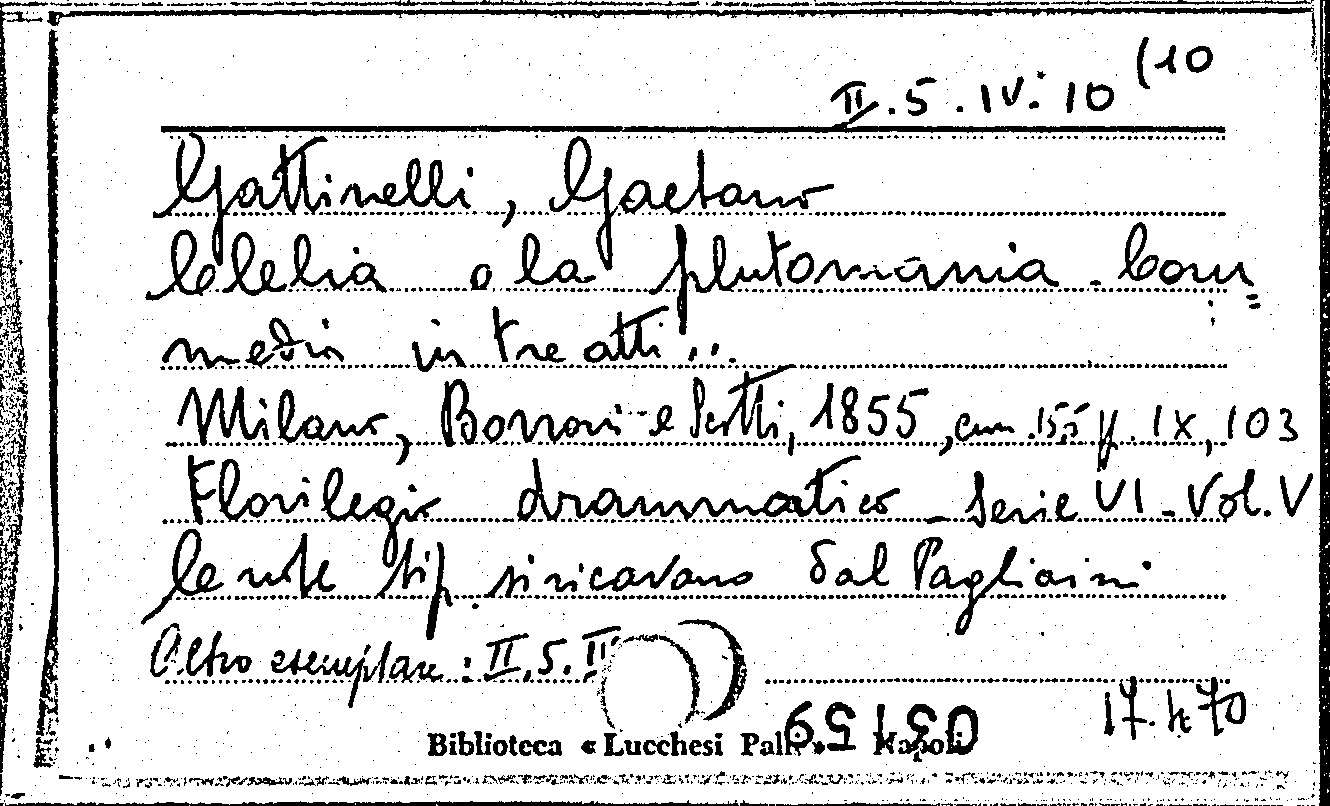 II.5.IV.10 (10
Gattinelli, Gaetano
Clelia o la plutomania. Com=
media in tre atti...
Milano, Borroni e Scotti, 1855, cm. 15,5 pp. IX, 103
Florilegio drammatico - Serie VI - Vol. V
le note tip. si ricavano dal Pagliaini
Altro esemplare: II.5.II
17.470
Biblioteca « Lucchesi Palli » Napoli